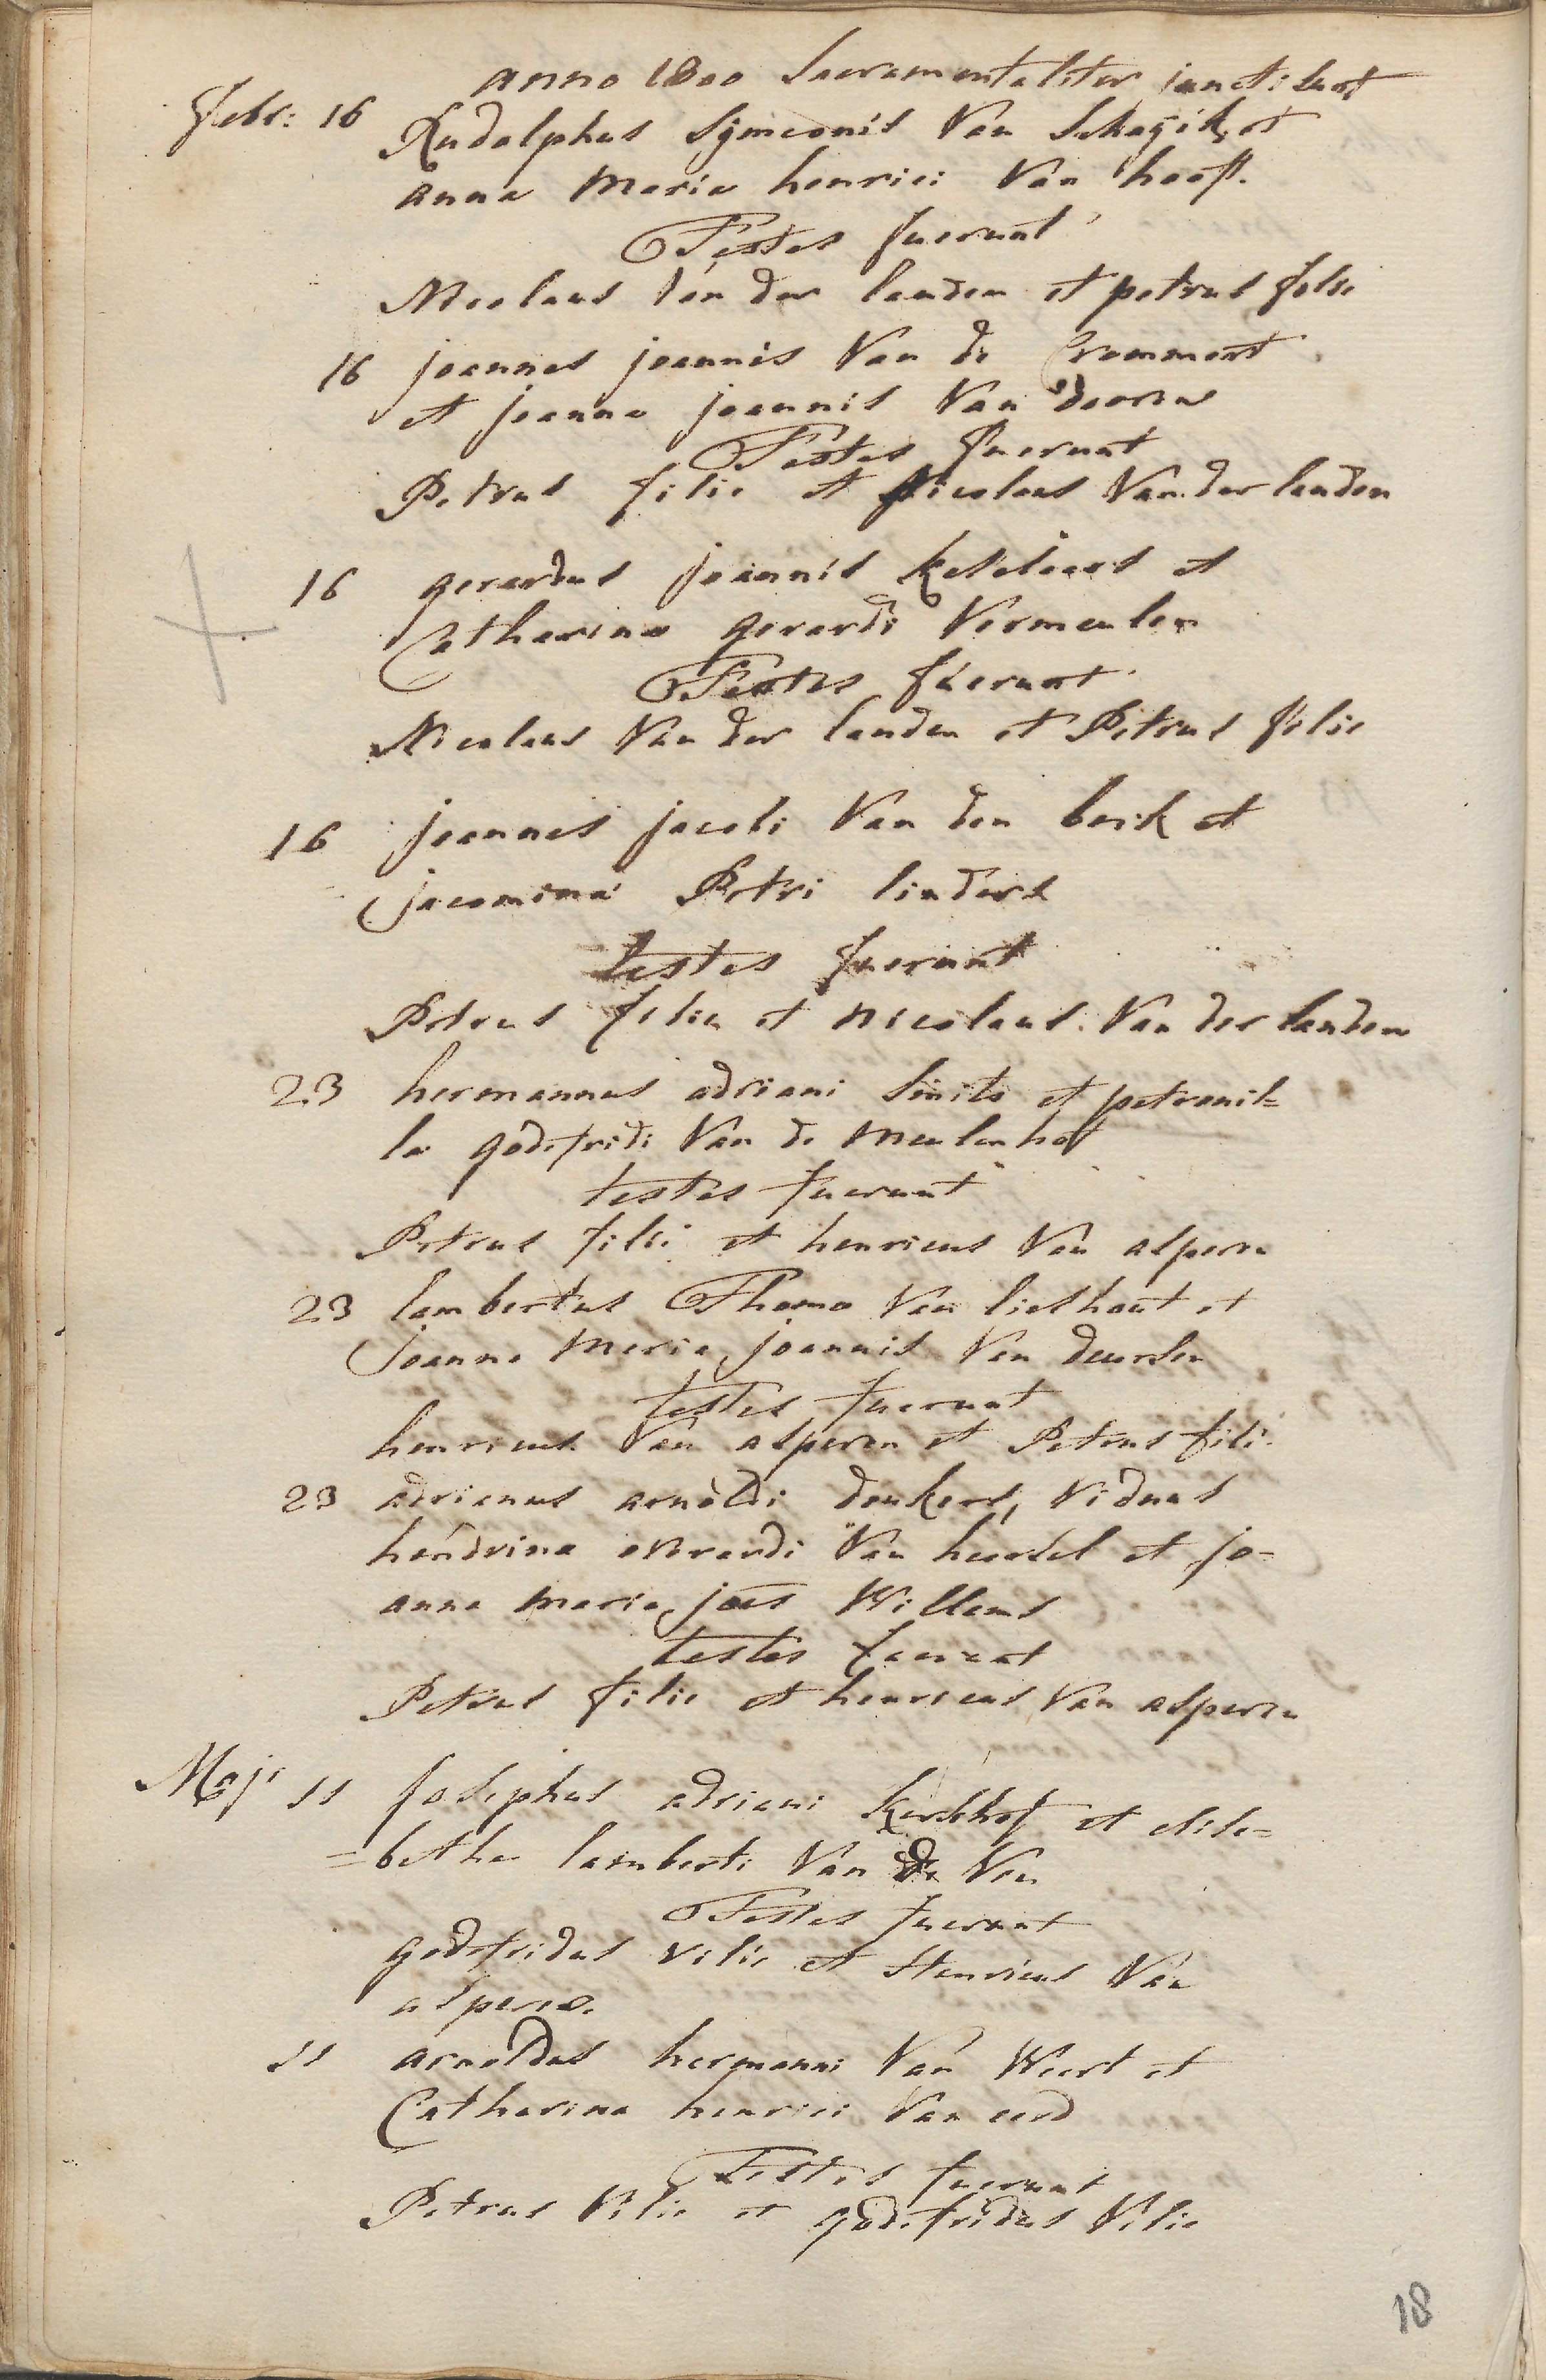 anno 1800 Sacramentaliter iuncti sunt
Febr: 16 Rudolphus Symeonis Van Schayik et
anna Maria henrici Van hooff.
Testes fuerunt
Nicolaus Van der landen et petrus filie
16 joannes joannis Van de Crommert
et joanna joannis Van doorne
Testes fuerunt
Petrus filie et Nicolaus Van der landen
16 gerardus joannis Keselaers et
Catharina gerardi Vermeulen
Testes fuerunt
Nicolaus Van der landen et Petrus filie
16 joannes jacobi Van den berk et
jacomina Petri linders
testes fuerunt
Petrus filie et nicolaus Van der landen
23 hermannus adriani Smits et petronil=
la godefridi Van de Meulenhof
testes fuerunt
Petrus filie et henricus Van asperen
23 lambertus Thoma Van lieshout et
Joanna Maria joannis Van deursen
testes fuerunt
henricus Van asperen et Petrus fili
23 adrianus arnoldi donkers, viduus
hendrina everardi Van heertel et jo=
anna maria joes Willems
testes fuerunt
Petrus filie et henricus Van asperen
Maji 11 Josephus adriani Kerkhof et elisa=
=betha lamberti Van de Ven
Testes fuerunt
godefridus Vilie et Henricus Van
asperen
11 arnoldus hermanni Van Weert et
Catharina henrici Van eerd
Testes fuerunt
Petrus Vilie et godefridus Vilie
18